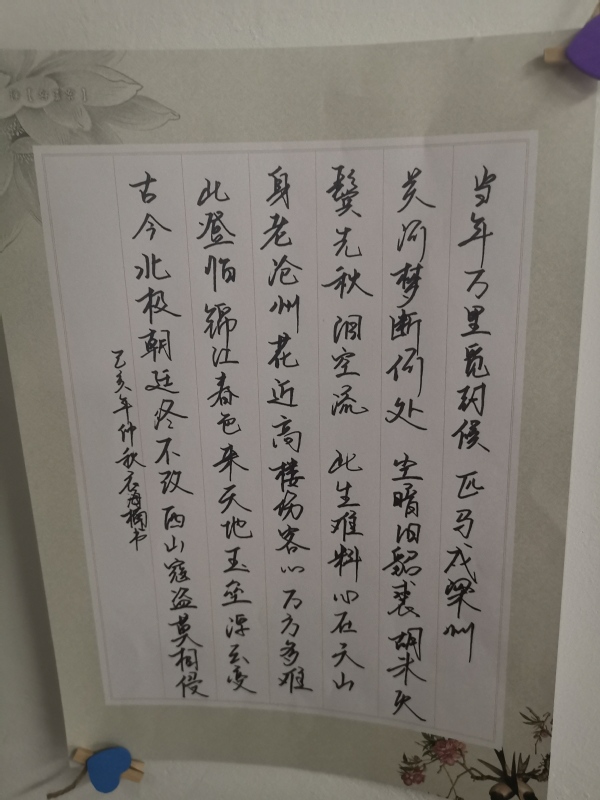 当年万里觅封候 匹马戍梁州
关河梦断何处 尘暗旧貂裘 胡未灭
鬓先秋 泪空流 此生难料 心在天山
身老沧州 花近高楼伤客心 万方多难
此登临 锦江春色来天地 玉垒浮云变
古今 北极朝廷终不改 西山寇盗莫相侵
己亥年仲秋